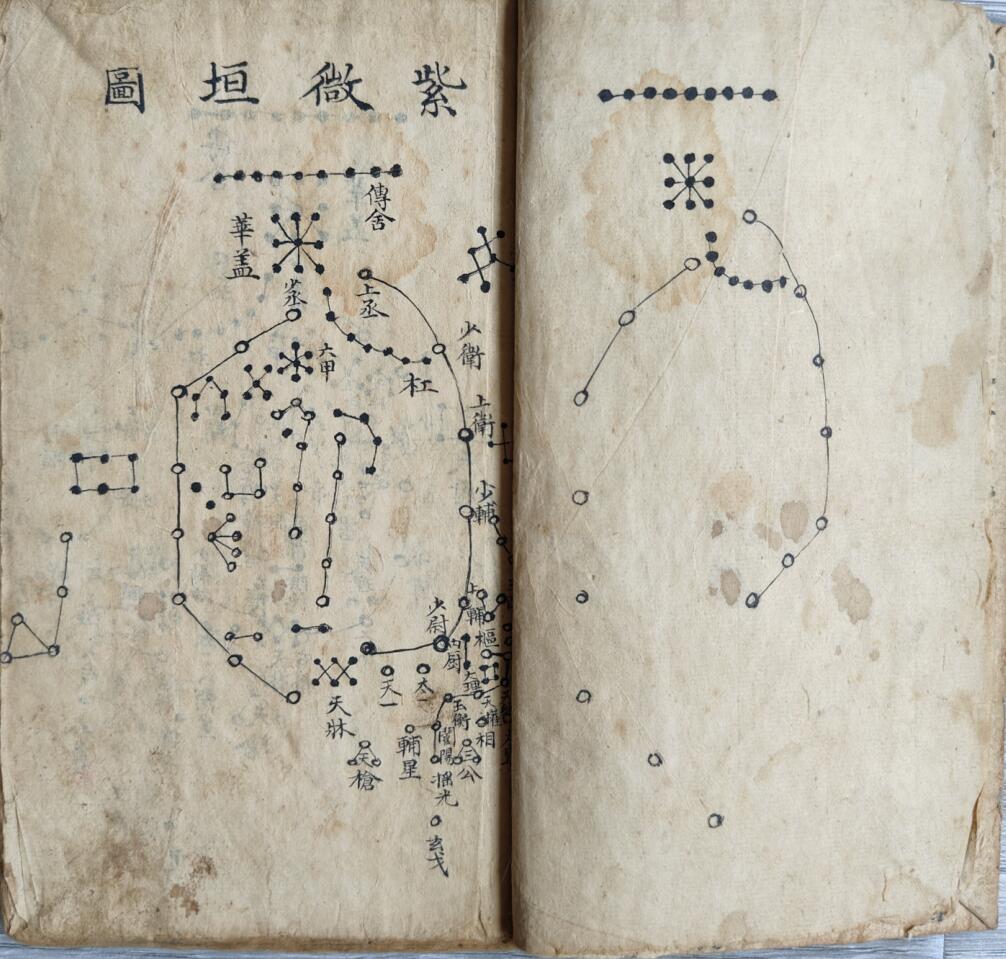 紫微垣圖
傳舍
華盖
上丞
少丞
六甲
杠
少衛
上衛
少輔
上輔
少尉
樞
内厨
天一
太一
天牀
玉衡
相
輔星
開陽
三公
天槍
摇光
玄戈